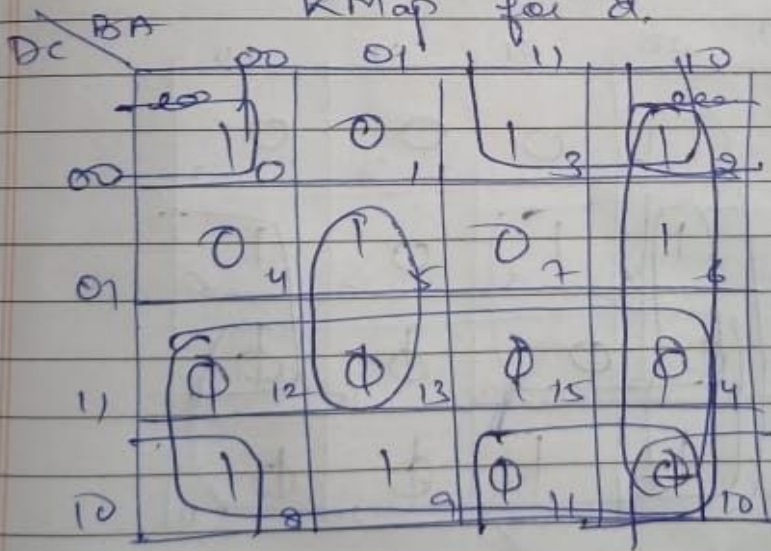 KMap for d.
DC BA
00 01 11 10
00 1 0 0 1 1 3 1 2
01 0 4 1 5 0 7 1 6
11 Φ 12 Φ 13 Φ 15 Φ 14
10 1 8 1 9 Φ 11 Φ 10